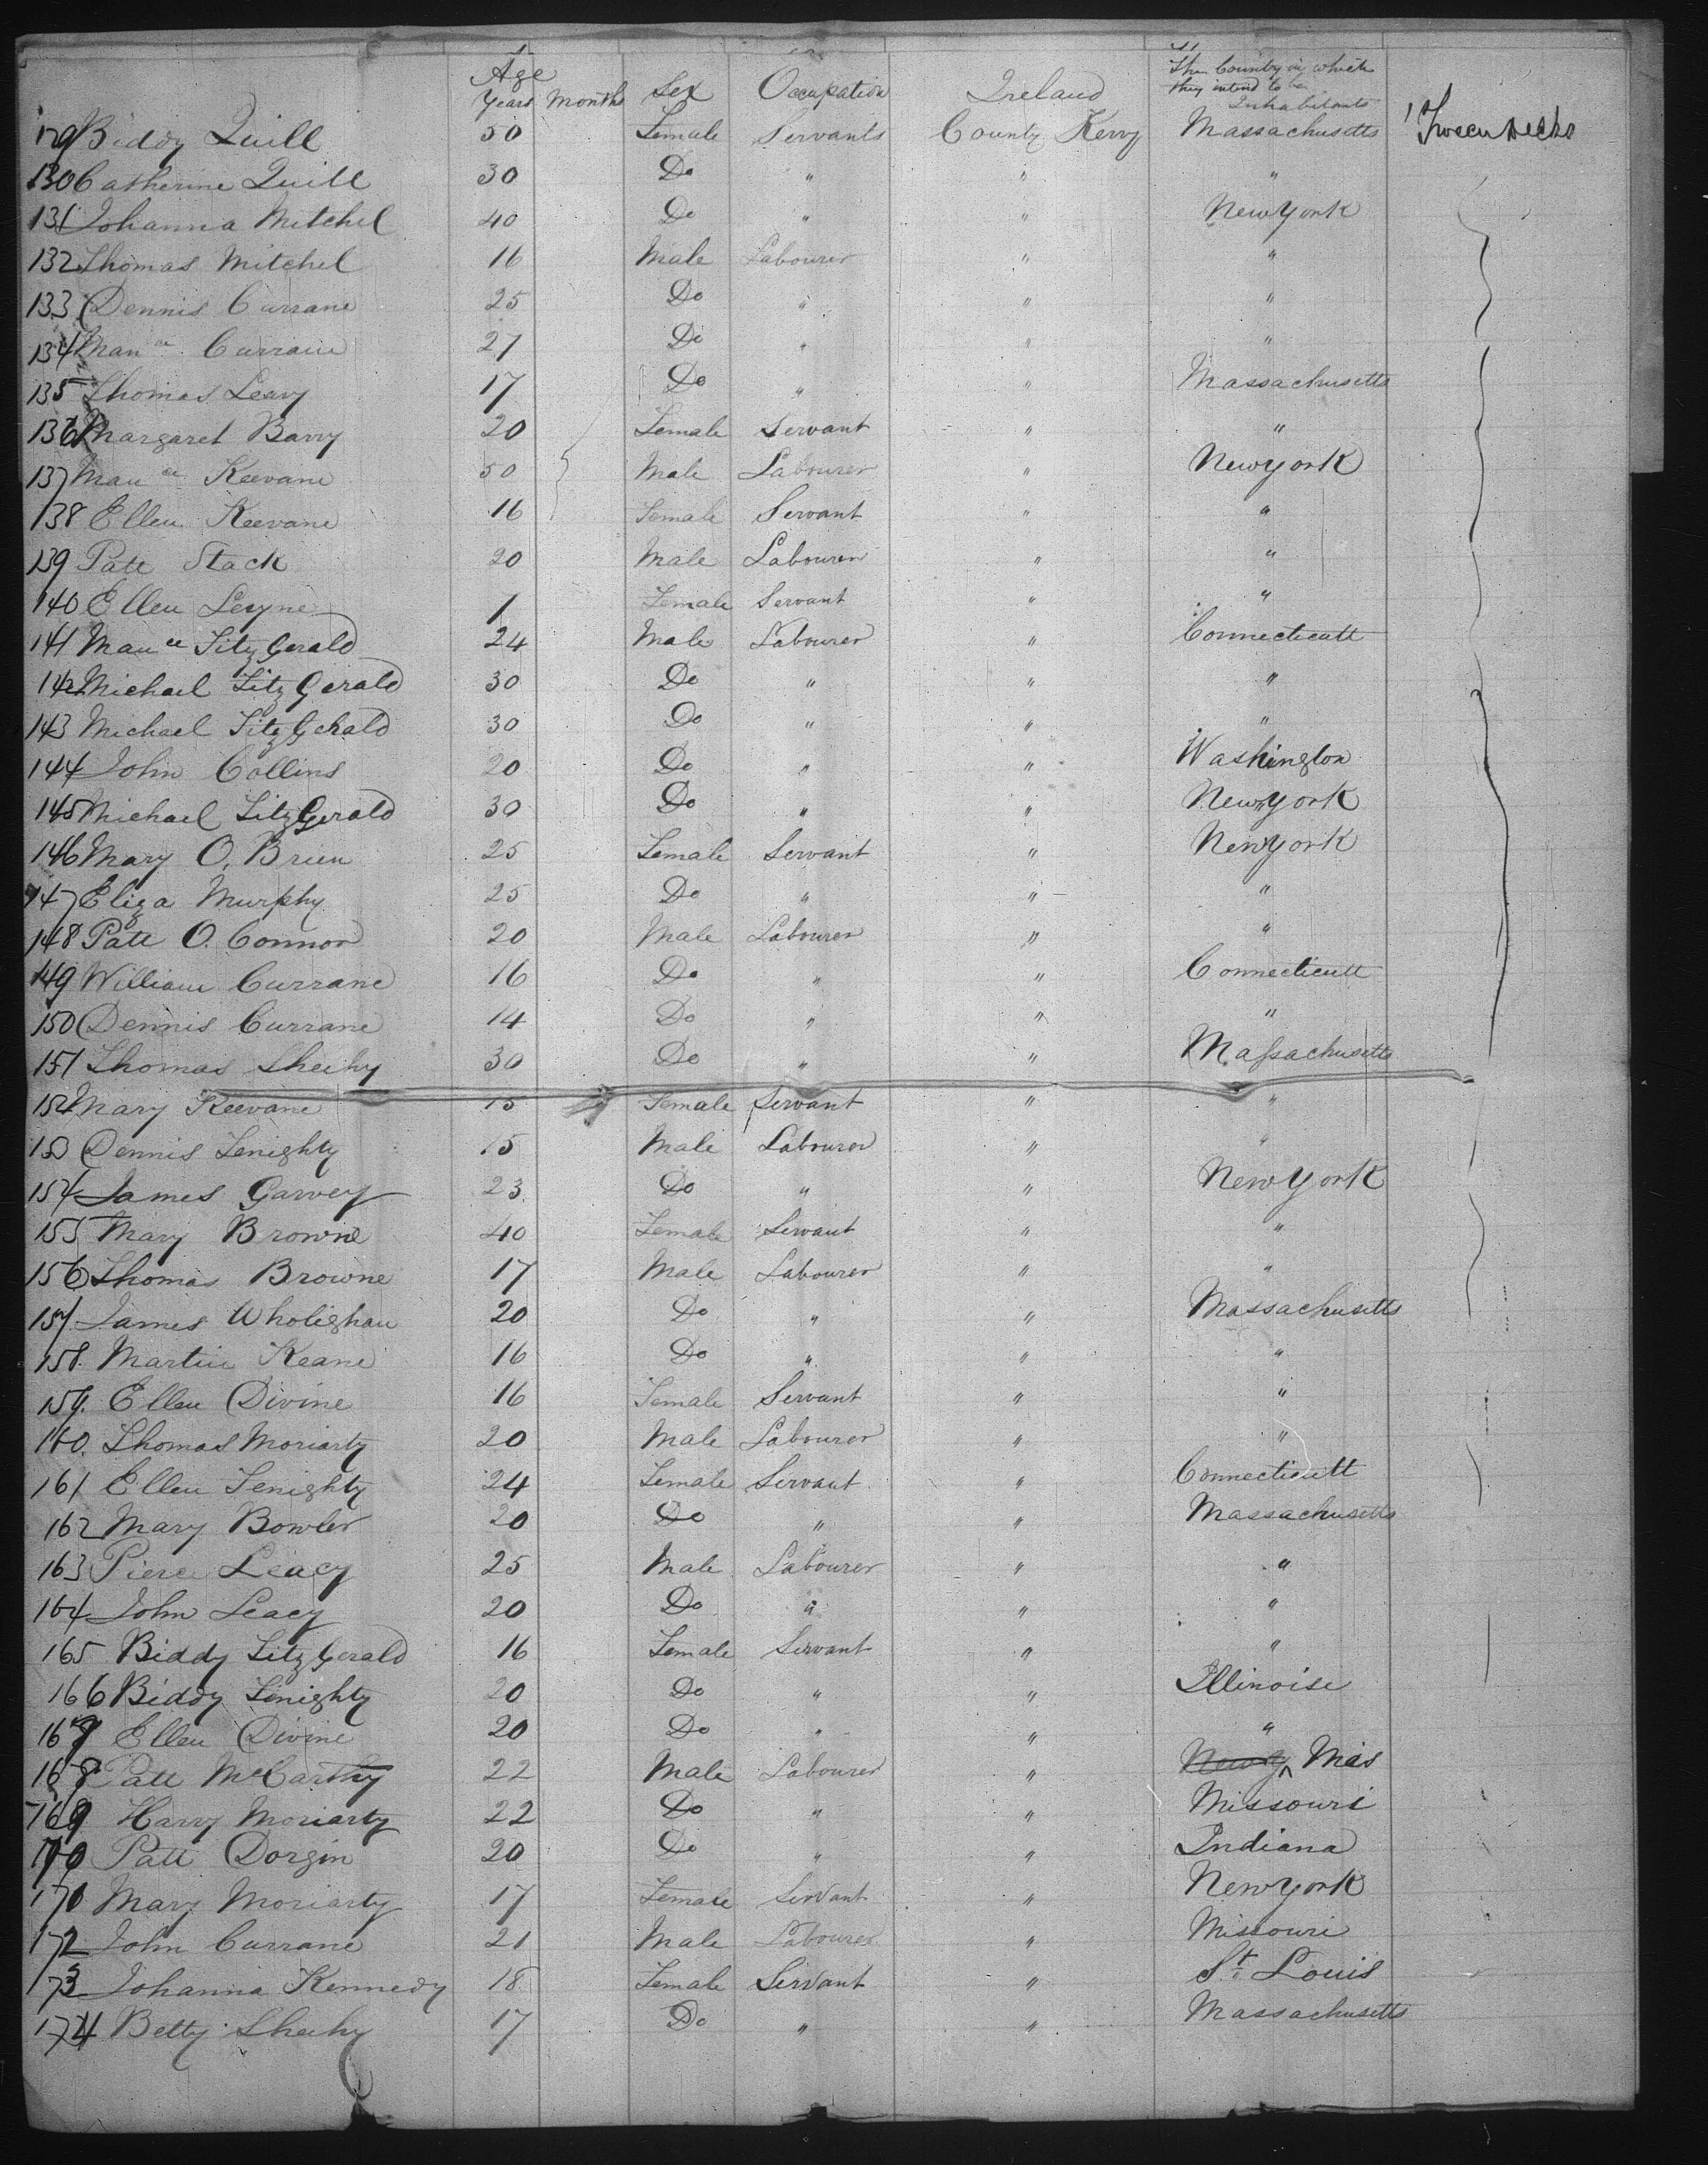 Age The Country in which
Years Months Sex Occupation Ireland they intend to be Inhabitants
129 Biddy Quill 50 Female Servants County Kerry Massachusetts Tween Decks
130 Catherine Quill 30 Do " " "
131 Johanna Mitchel 40 Do " " New York
132 Thomas Mitchel 16 Male Labourer " "
133 Dennis Currane 25 Do " " "
134 Mauce Currane 27 Do " " "
135 Thomas Leary 17 Do " " Massachusetts
136 Margaret Barry 20 Female Servant " "
137 Mauce Keevane 50 Male Labourer " New York
138 Ellen Keevane 16 Female Servant " "
139 Patt Stack 20 Male Labourer " "
140 Ellen Leyne 1 Female Servant " "
141 Mauce FitzGerald 24 Male Labourer " Connecticutt
142 Michael FitzGerald 30 Do " " "
143 Michael FitzGerald 30 Do " " "
144 John Collins 20 Do " " Washington
145 Michael FitzGerald 30 Do " " New York
146 Mary O. Brien 25 Female Servant " New York
147 Eliza Murphy 25 Do " " "
148 Patt O. Connor 20 Male Labourer " "
149 William Currane 16 Do " " Connecticutt
150 Dennis Currane 14 Do " " "
151 Thomas Sheehy 30 Do " " Massachusetts
152 Mary Keevane 15 Female Servant " "
153 Dennis Fenighty 15 Male Labourer " "
154 James Garvey 23 Do " " New York
155 Mary Browne 40 Female Servant " "
156 Thomas Browne 17 Male Labourer " "
157. James Wholighau 20 Do " " Massachusetts
158. Martin Keane 16 Do " " "
159. Ellen Divine 16 Female Servant " "
160. Thomas Moriarty 20 Male Labourer " "
161 Ellen Fenighty 24 Female Servant " Connecticutt
162 Mary Bowler 20 Do " " Massachusetts
163 Pierce Leacy 25 Male Labourer " "
164 John Leacy 20 Do " " "
165 Biddy FitzGerald 16 Female Servant " "
166 Biddy Finighty 20 Do " " Illinoise
167 Ellen Divine 20 Do " " "
168 Patt McCarthy 22 Male Labourer " New y Mas
169 Harry Moriarty 22 Do " " Missouri
170 Patt Dorgin 20 Do " " Indiana
170 Mary Moriarty 17 Female Servant " New York
172 John Currane 21 Male Labourer " Missouri
173 Johanna Kennedy 18 Female Servant " St. Louis
174 Betty Sheehy 17 Do " " Massachusetts